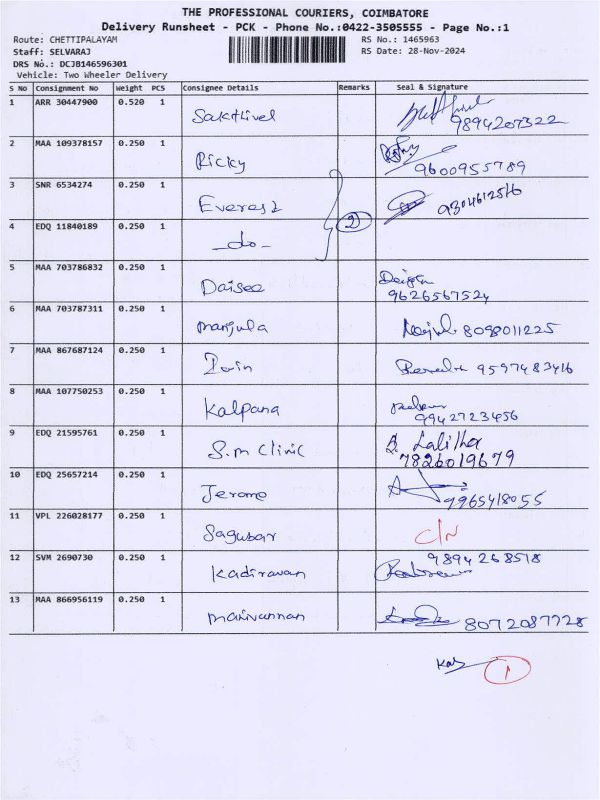 THE PROFESSIONAL COURIERS, COIMBATORE
Delivery Runsheet - PCK - Phone No.:0422-3505555 - Page No.:1
Route: CHETTIPALAYAM RS No.: 1465963
Staff: SELVARAJ RS Date: 28-Nov-2024
DRS No.: DCJB146596301
Vehicle: Two Wheeler Delivery
S No Consignment No Weight PCS Consignee Details Remarks Seal & Signature
1 ARR 30447900 0.520 1 Sakthivel 9894207322
2 MAA 109378157 0.250 1 Ricky 9600955789
3 SNR 6534274 0.250 1 Everest 2 9304612516
4 EDQ 11840189 0.250 1 -do-
5 MAA 703786832 0.250 1 Daisee 9626567524
6 MAA 703787311 0.250 1 manjula 8098011225
7 MAA 867687124 0.250 1 9597483416
8 MAA 107750253 0.250 1 Kalpana 9942723456
9 EDQ 21595761 0.250 1 S.m Clinic Lalitha
7826019679
10 EDQ 25657214 0.250 1 Jerome 9965418055
11 VPL 226028177 0.250 1 Sagubar C/N
12 SVM 2690730 0.250 1 Kadiravan 9894268518
13 MAA 866956119 0.250 1 marivannan 8072087728
1